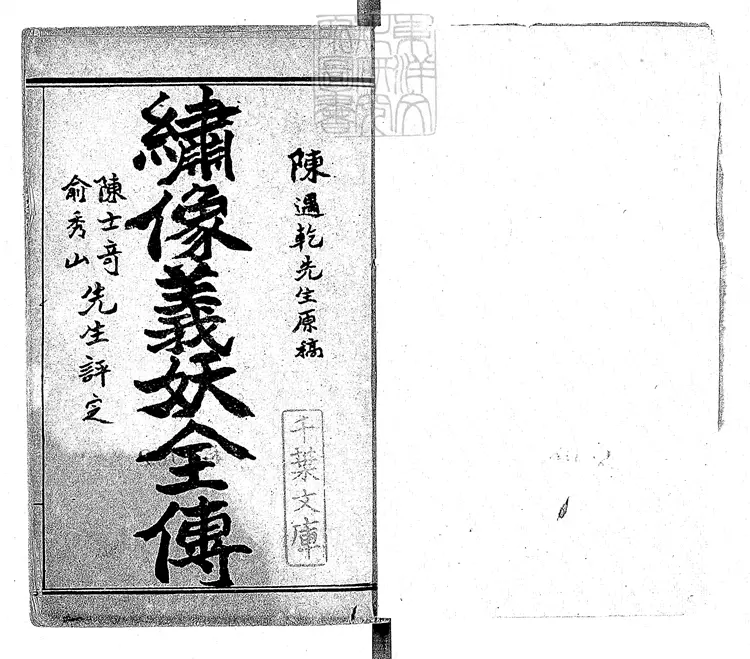 陳遇乾先生原稿
繡像義妖全傳
陳士奇
俞秀山
先生評定
千葉文庫